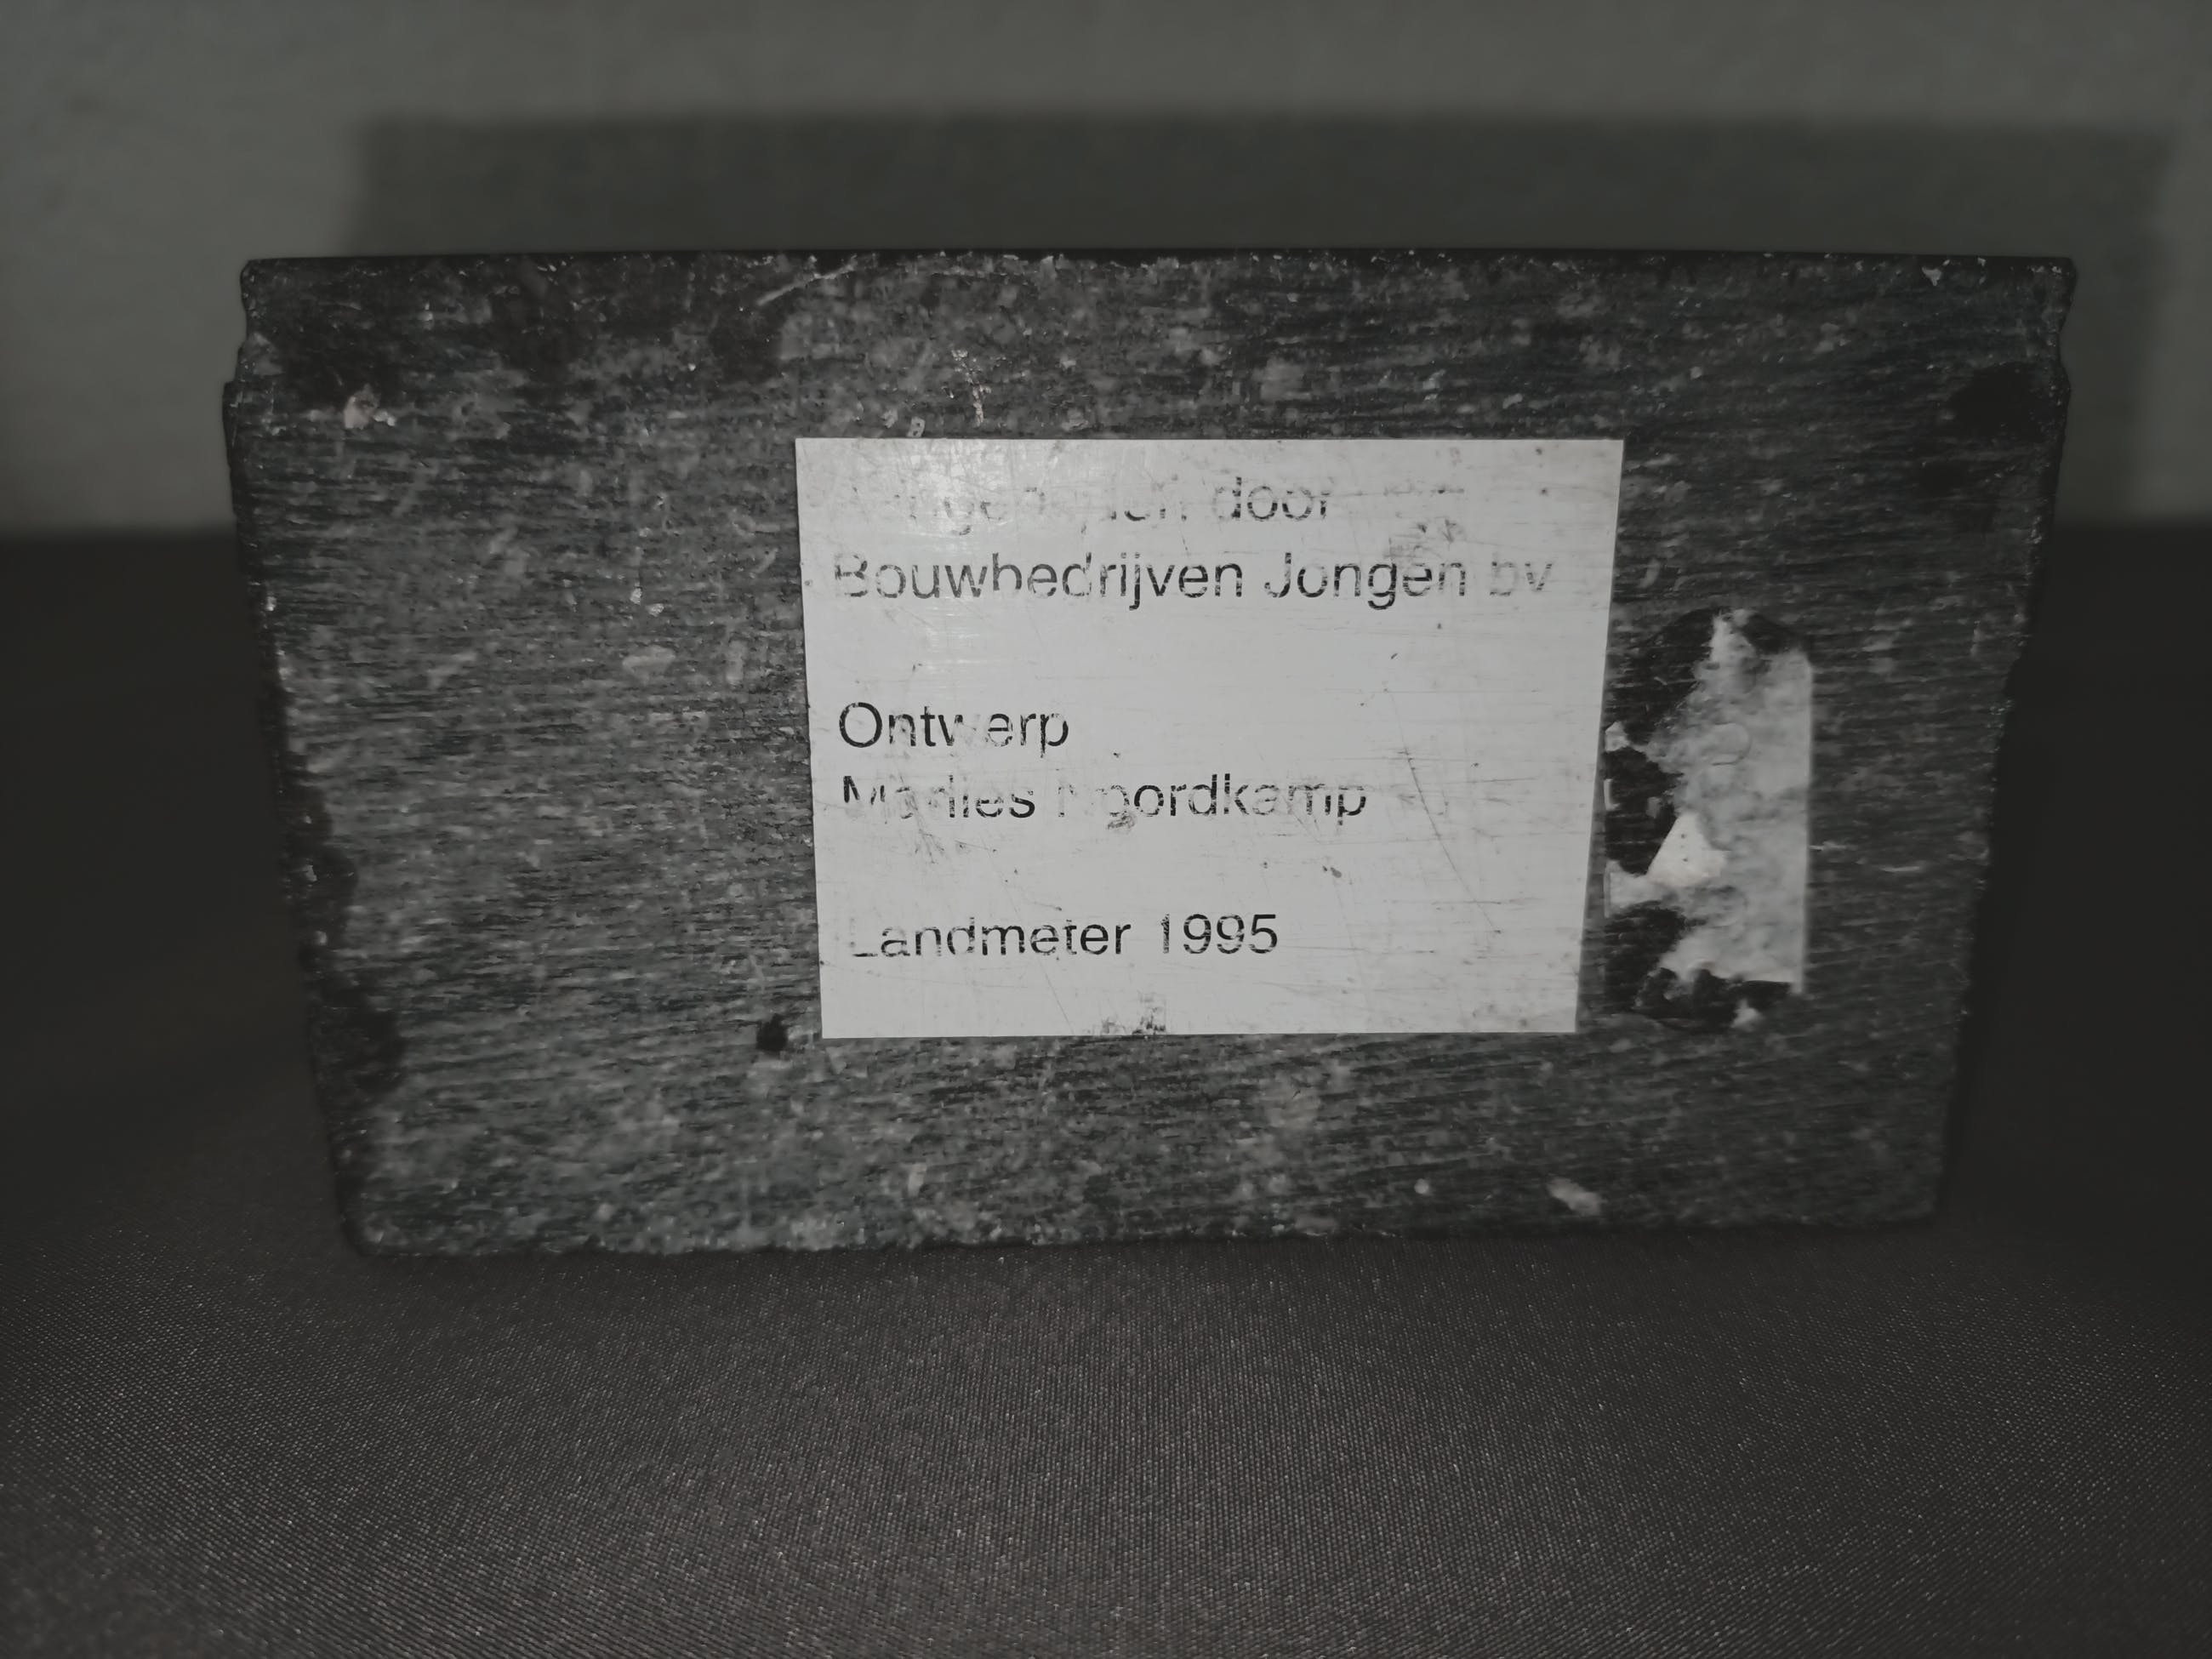 Aangeboden door
Bouwbedrijven Jongen bv
Ontwerp
Marlies Noordkamp
Landmeter 1995